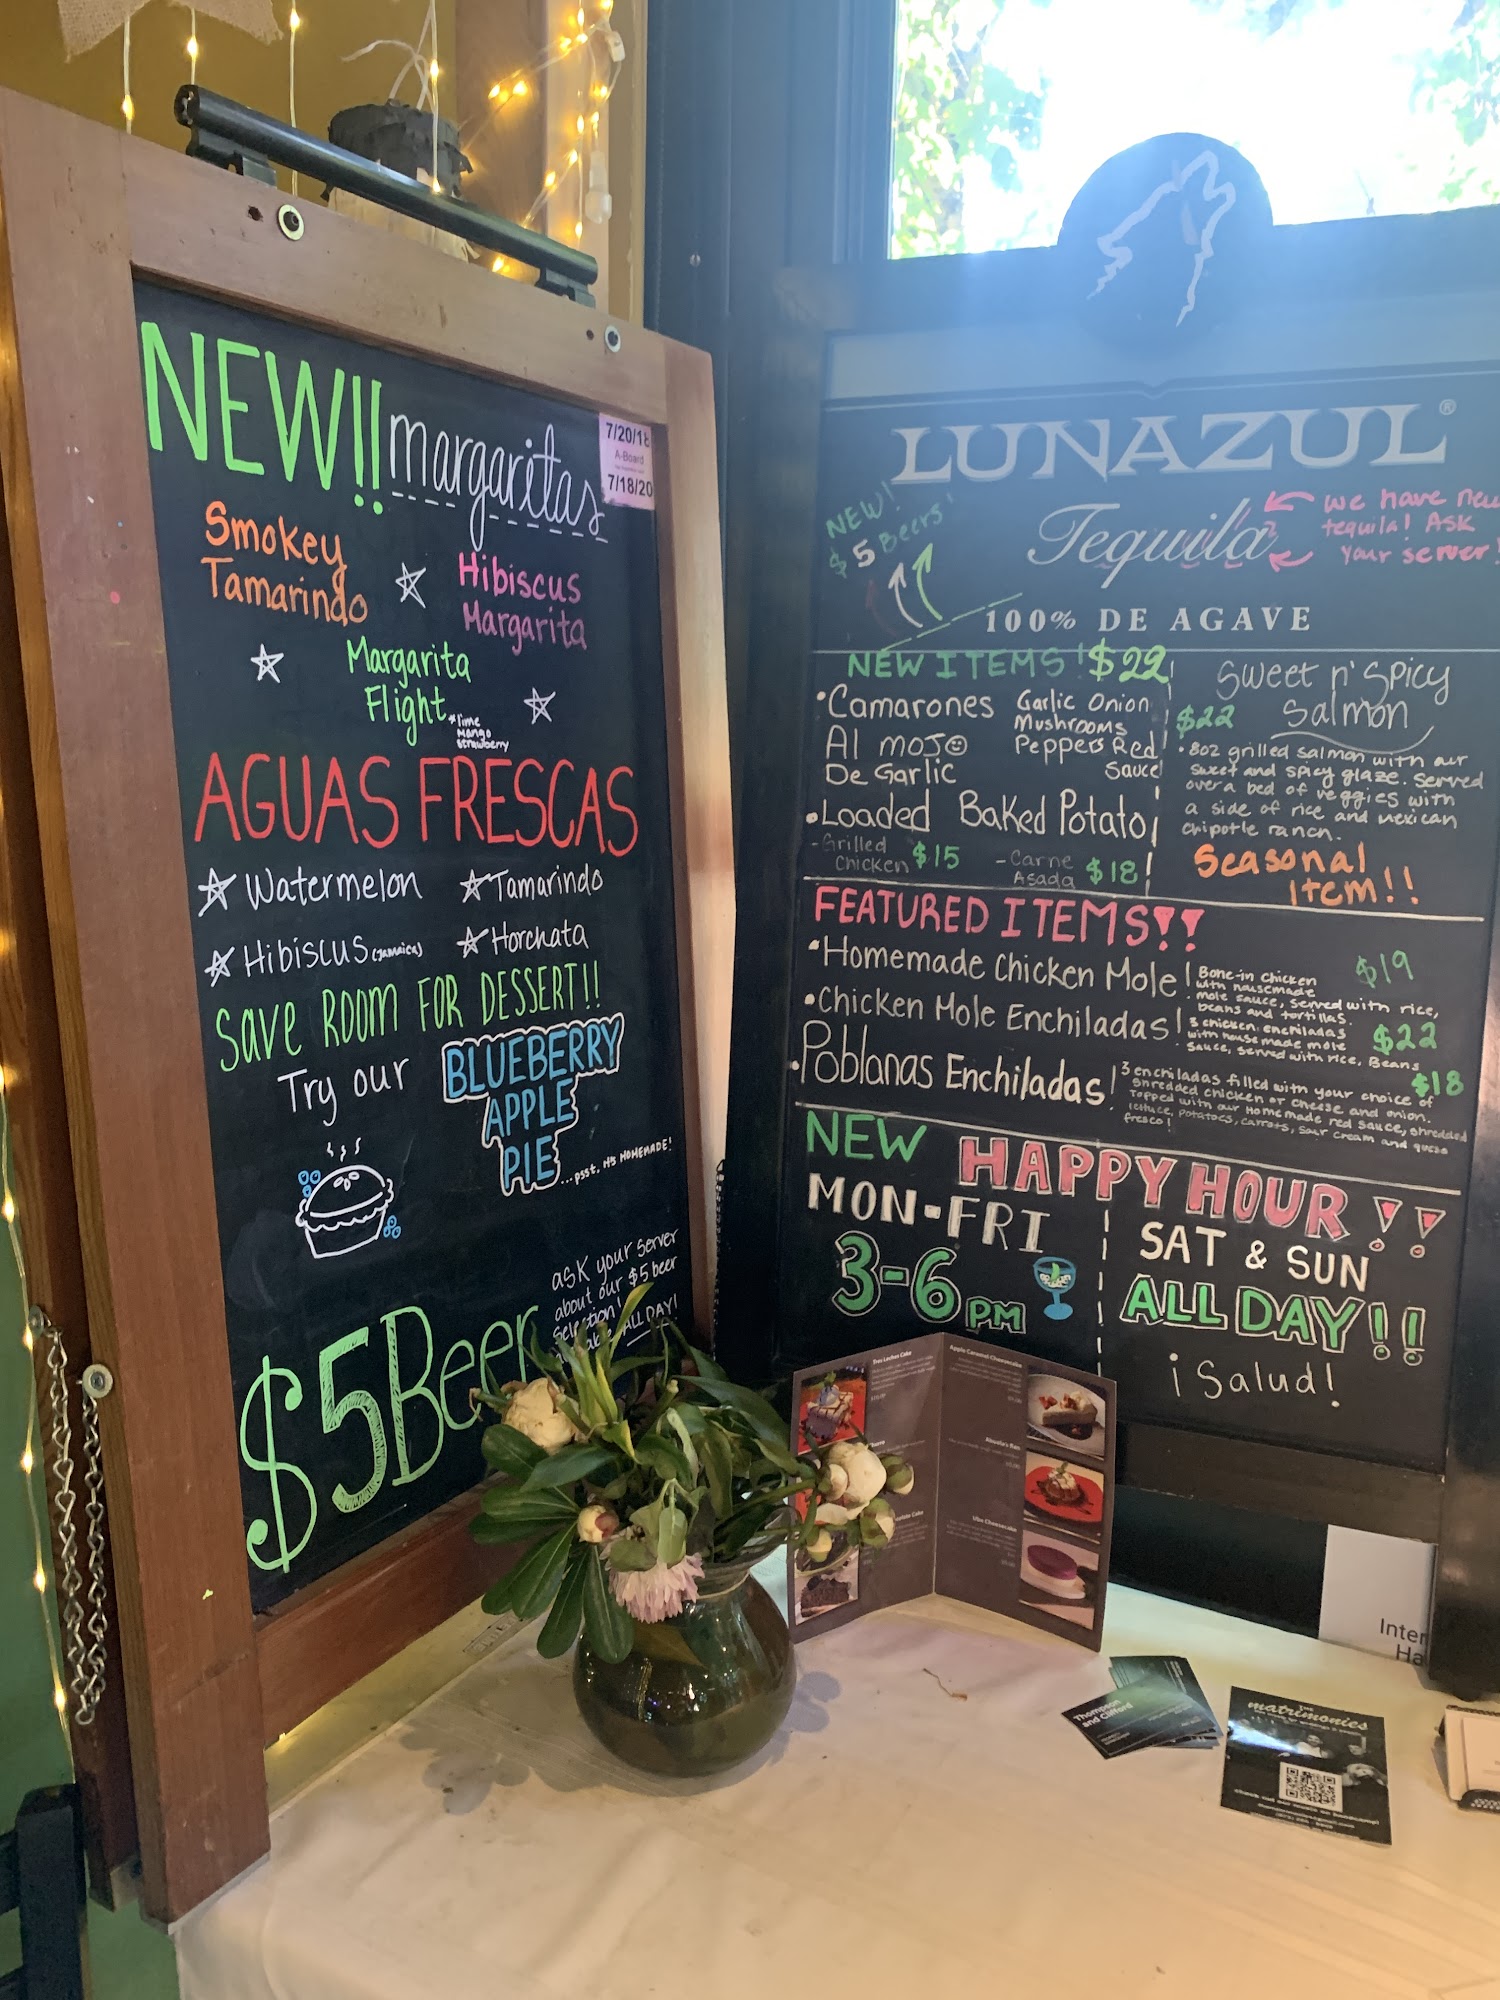 NEW!! margaritas
7/20/18
A-Board
7/18/20
Smokey
Tamarindo
Hibiscus
Margarita
Margarita
Flight
*lime
Mango
Strawberry
AGUAS FRESCAS
Watermelon
Tamarindo
Hibiscus (Jamaica)
Horchata
Save ROOM FOR DESSERT!!
Try our
BLUEBERRY
APPLE
PIE
...psst, it's HOMEMADE!
ask your server
about our $5 beer
Selection!
ALL DAY!
$5 Beer
LUNAZUL®
Tequila
100% DE AGAVE
NEW!
$5 Beers!
we have new
tequila! Ask
your server!
NEW ITEMS! $22
•Camarones
Al mojo
De Garlic
Garlic Onion
Mushrooms
Peppers Red
Sauce
•Loaded Baked Potato
-Grilled
Chicken $15
-Carne
Asada $18
Sweet n' Spicy
$22 Salmon
•8oz grilled salmon with our
sweet and spicy glaze. Served
over a bed of veggies with
a side of rice and mexican
chipotle ranch.
Seasonal
Item!!
FEATURED ITEMS!!
•Homemade Chicken Mole!
Bone-in chicken
with housemade
mole sauce, served with rice,
beans and tortillas.
$19
•Chicken Mole Enchiladas!
3 chicken enchiladas
with house made mole
sauce, served with rice, Beans
$22
•Poblanas Enchiladas!
3 enchiladas filled with your choice of
shredded chicken or cheese and onion.
Topped with our Homemade red sauce, shredded
lettuce, potatoes, carrots, sour cream and queso
fresco!
$18
NEW HAPPY HOUR!!
MON-FRI
3-6 PM
SAT & SUN
ALL DAY!!
¡Salud!
Tres Leches Cake
Apple Caramel Cheesecake
Abuela's Flan
Ube Cheesecake
Thompson
and Clifford
matrimonies
Inter
Ha